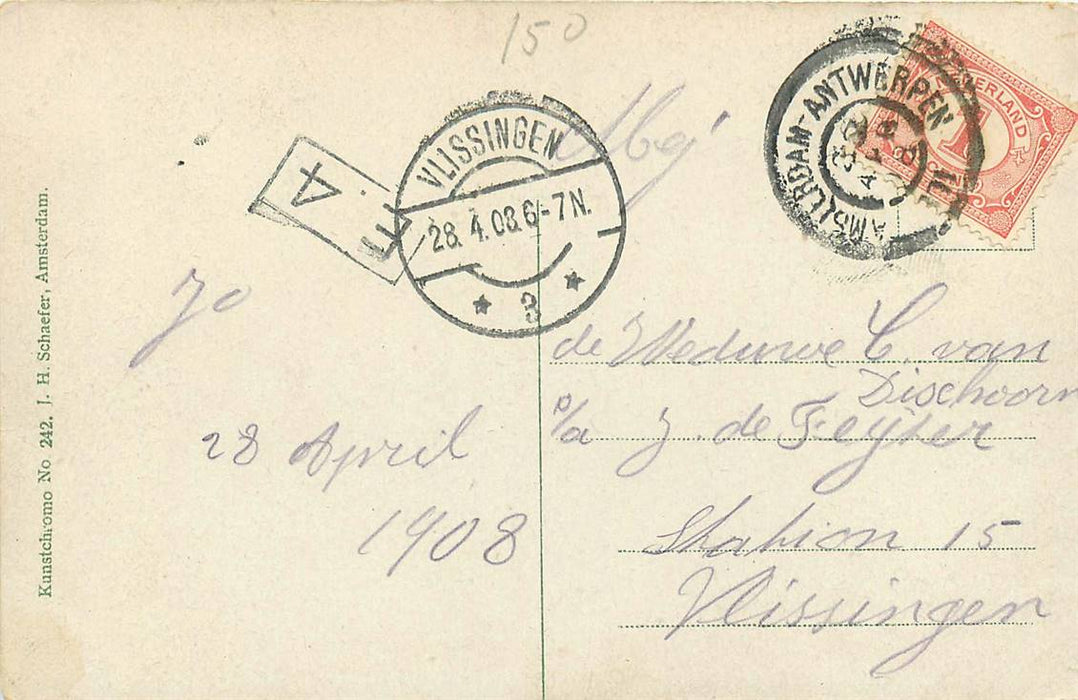 150
Mej
NEDERLAND
1
AMSTERDAM-ANTWERPEN
VLISSINGEN
28.4.08.6-7N.
3
F 4
Kunstchromo No 242. J. H. Schaefer, Amsterdam.
Jo
28 April
1908
de Weduwe C. van
Dischoorn
p/a J. de Feijter
Station 15
Vlissingen